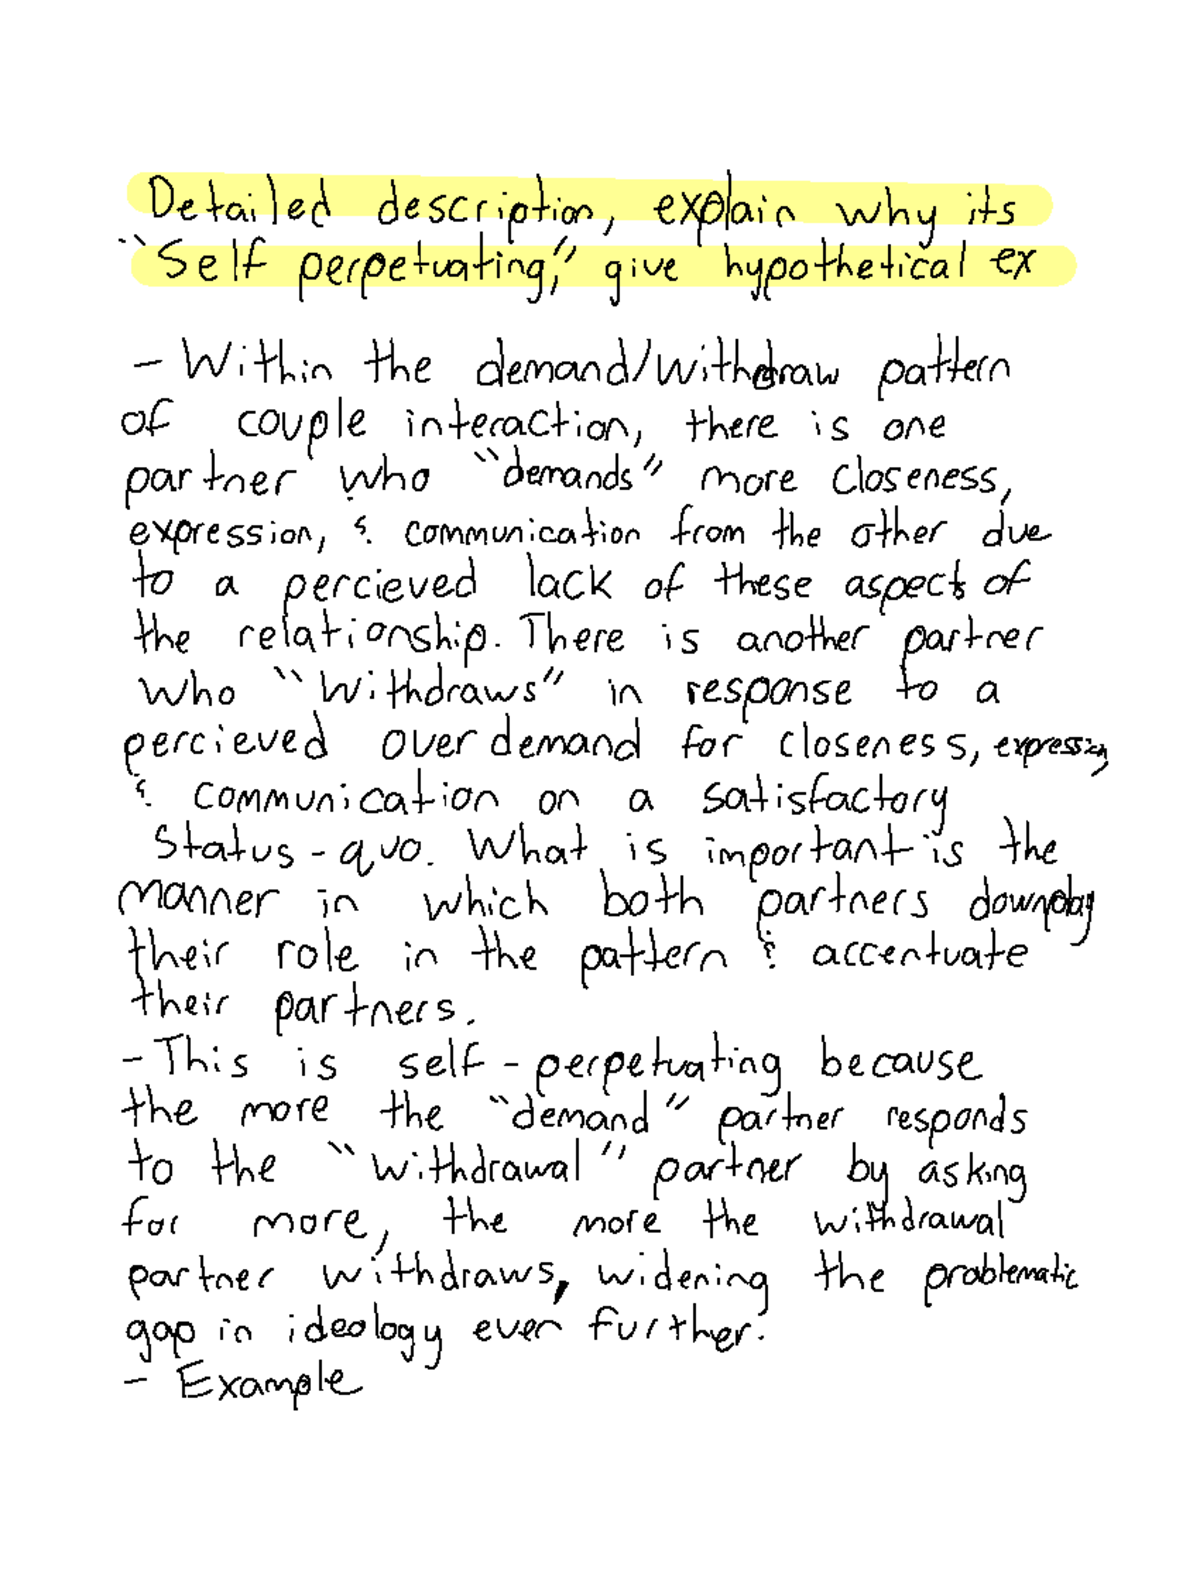 Detailed description, explain why its
"Self perpetuating," give hypothetical ex
- Within the demand/withdraw pattern
of couple interaction, there is one
partner who "demands" more closeness,
expression, & communication from the other due
to a percieved lack of these aspects of
the relationship. There is another partner
who "withdraws" in response to a
percieved over demand for closeness, expression,
& communication on a satisfactory
status-quo. What is important is the
manner in which both partners downplay
their role in the pattern & accentuate
their partners.
- This is self-perpetuating because
the more the "demand" partner responds
to the "withdrawal" partner by asking
for more, the more the withdrawal
partner withdraws, widening the problematic
gap in ideology ever further.
- Example